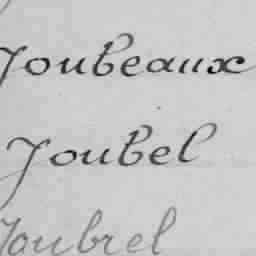 Joubeaux
Joubel
Joubrel